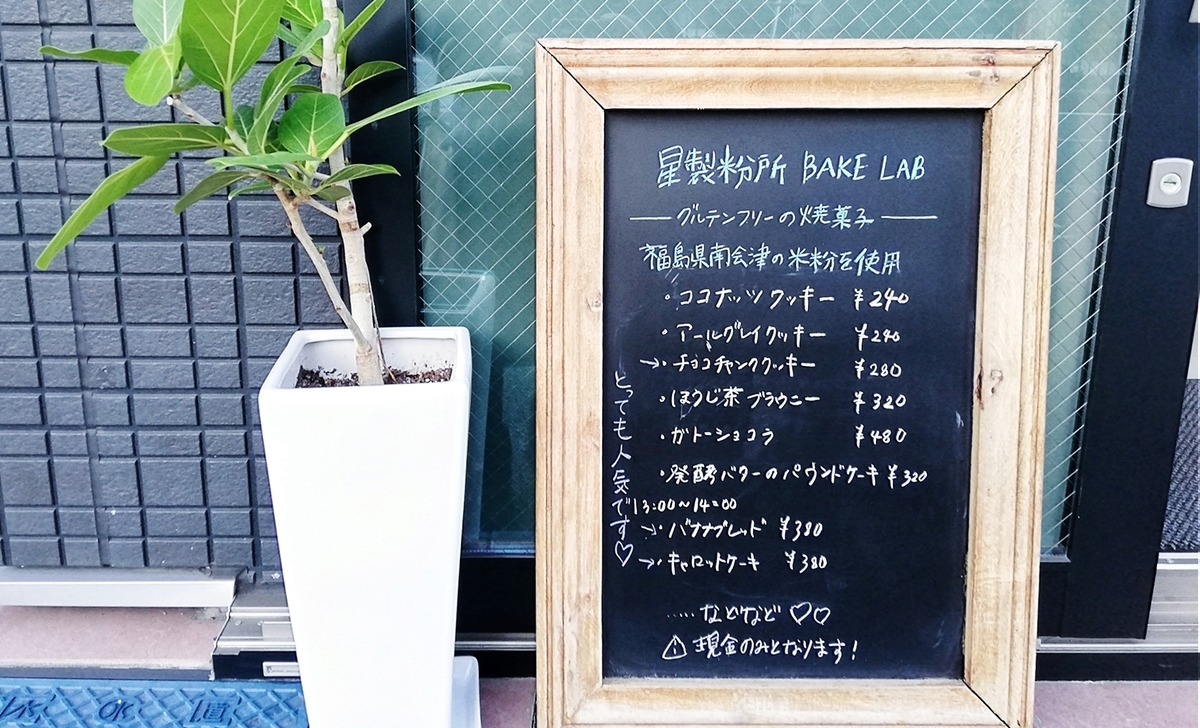 星製粉所 BAKE LAB
グルテンフリーの焼菓子
福島県南会津の米粉を使用
・ココナッツクッキー ¥240
・アールグレイクッキー ¥240
→・チョコチャンククッキー ¥280
・ほうじ茶ブラウニー ¥320
・ガトーショコラ ¥480
・発酵バターのパウンドケーキ ¥320
13:00〜14:00
→・バナナブレッド ¥380
→・キャロットケーキ ¥380
とっても人気です♡
……などなど♡♡
⚠現金のみとなります!